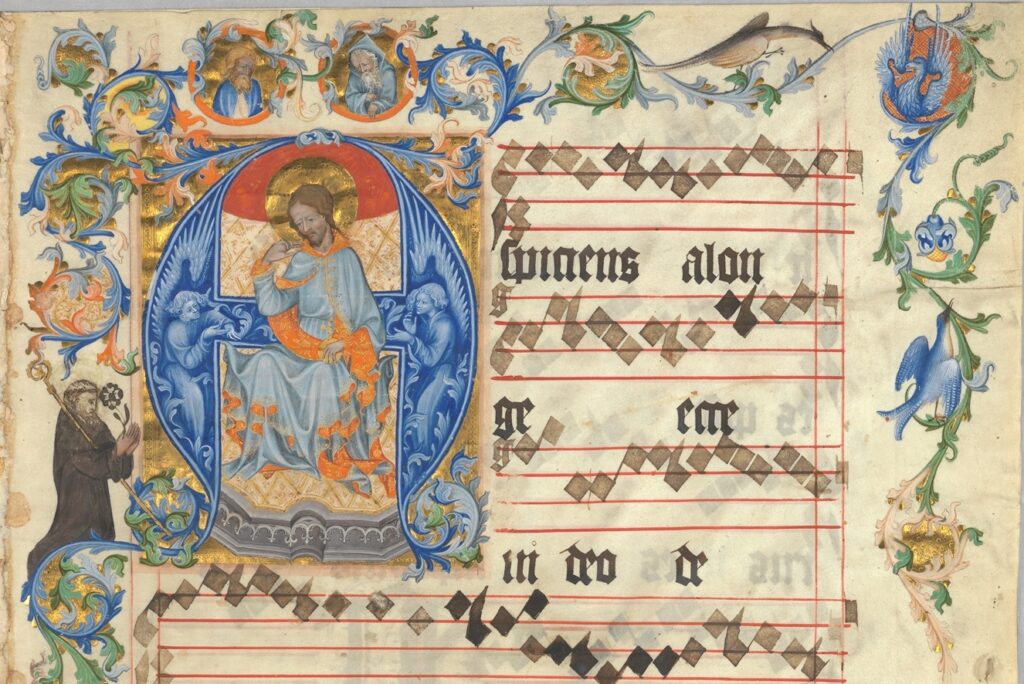 Aspiciens alon
ge ecce
ui deo de